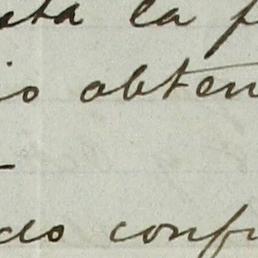 sta la p
io obten
do conf